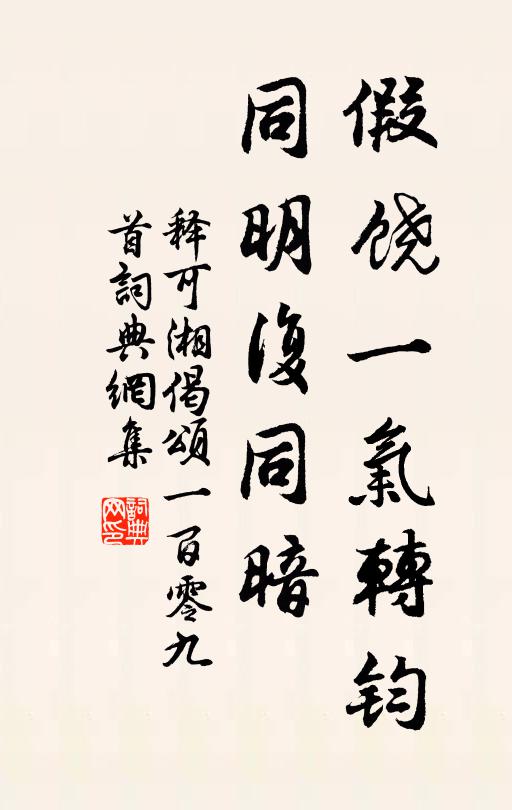 假饶一氣轉鈞
同明復同暗
释可湘偈頌一百零九
首詞典網集
詞典网印